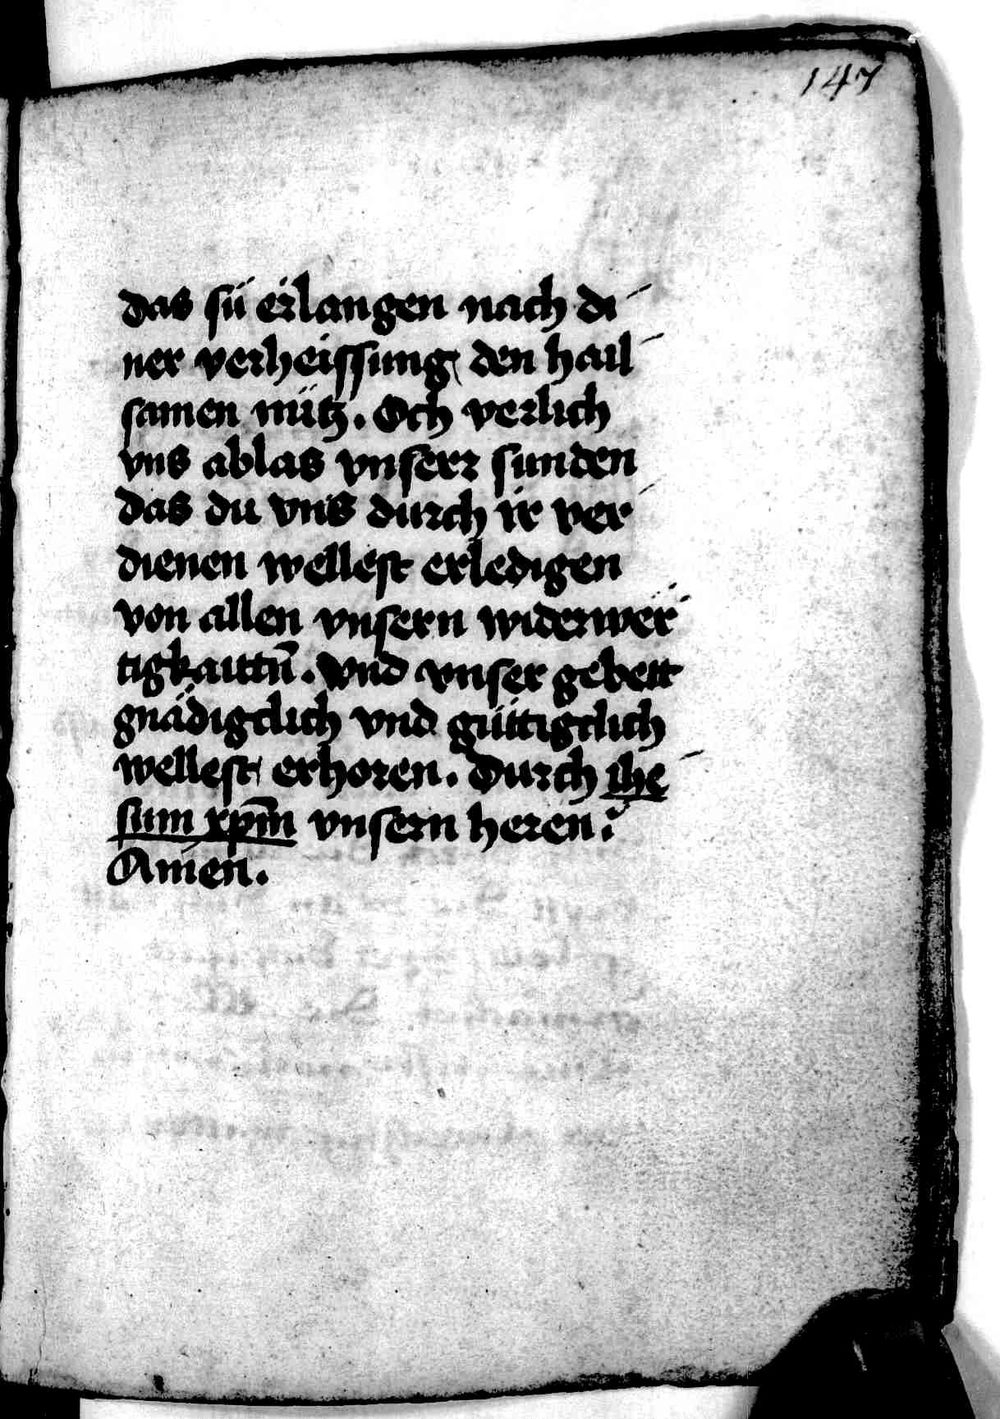 147
das sü erlangen nach di
ner verheissung den hail
samen nütz. Och verlich
vns ablas vnserr sunden
das du vns durch ir ver
dienen wellest erledigen
von allen vnsern widerwer
tigkaittn̄. Vnd vnser gebett
gnädigclich vnd güttigclich
wellest erhoren. Durch ihe
sum xp̄m vnsern heren.
Amen.